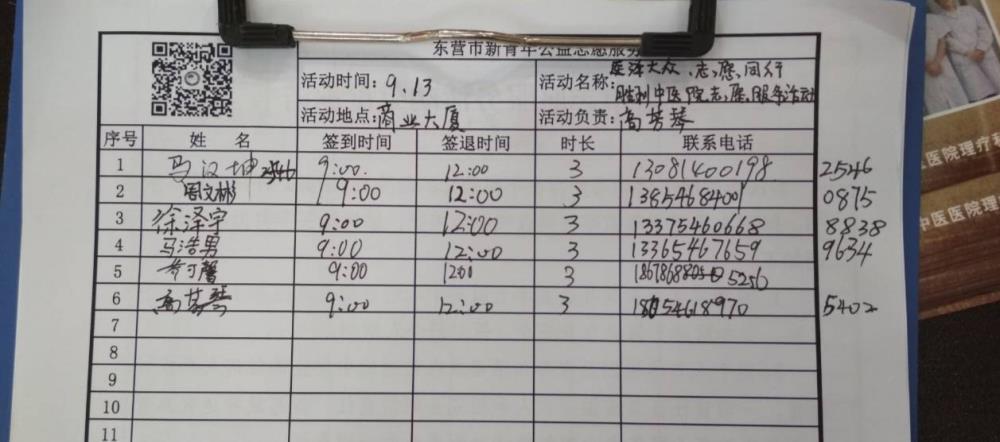 东营市新青年公益志愿服务
活动时间: 9.13
活动名称: 医泽大众、志愿同行
胜利中医院志愿服务活动
活动地点: 商业大厦
活动负责: 高梦琴
序号 姓 名 签到时间 签退时间 时长 联系电话
1 马汉坤 9:00 12:00 3 13081400198 2546
2 周文彬 9:00 12:00 3 13854684001 0875
3 徐泽宇 9:00 12:00 3 13375460668 8838
4 马浩男 9:00 12:00 3 13365467659 9634
5 9:00 1200 3 5256
6 9:00 12:00 3 5402
7
8
9
10
11
医医院理疗科
中医医院理